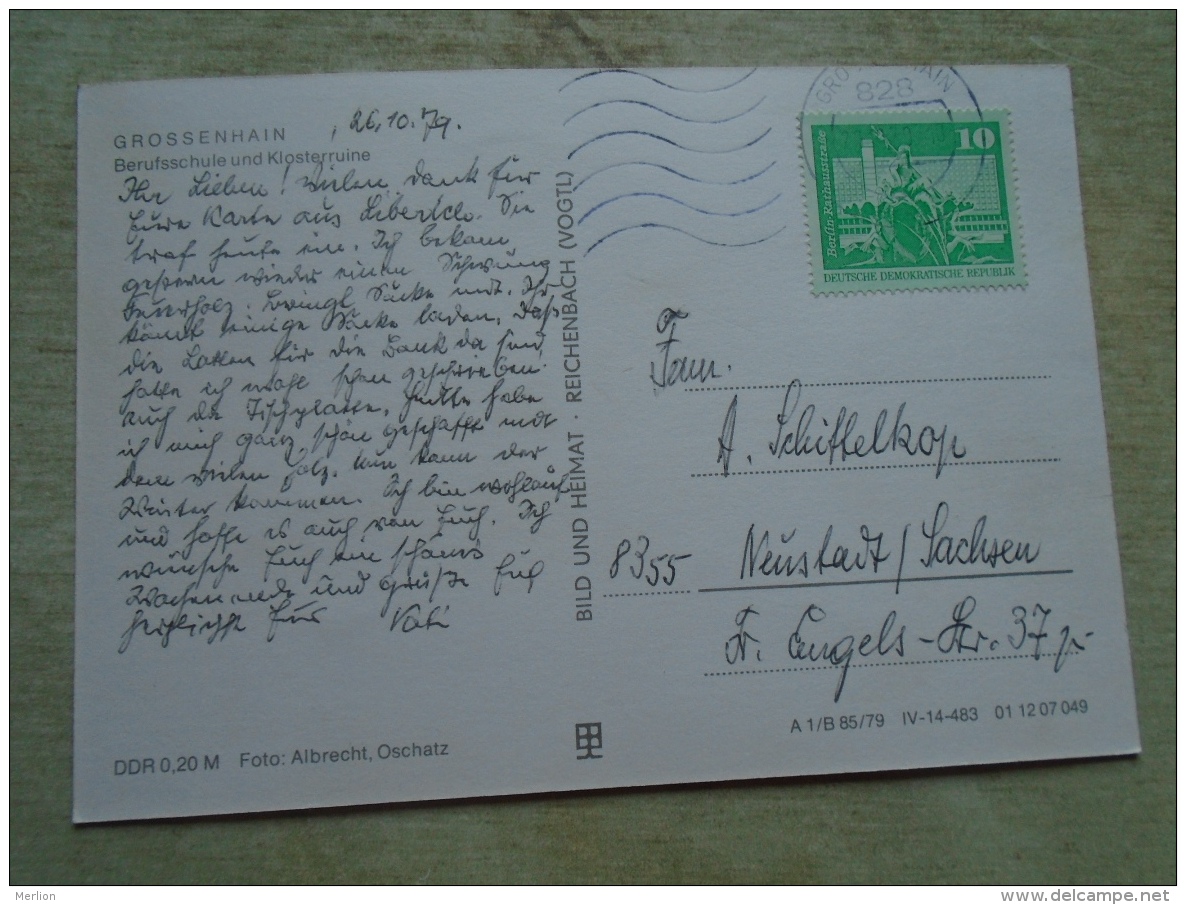 GROSSENHAIN
Berufsschule und Klosterruine
26.10.79.
Ihr Lieben! Vielen Dank für
Eure Karte aus Sie
traf heute ein. Ich bekam
gestern wieder einen Schwung
Feuerholz. Bringt Säcke mit. Ihr
könnt einige Säcke laden. Daß
die Latten für die Bank da sind,
hatte ich wohl schon geschrieben.
Auch die Tischplatte. Heute habe
ich mich ganz schön geschafft mit
dem vielen Holz. Nun kann der
Winter kommen. Ich bin wohlauf
und hoffe es auch von Euch. Ich
wünsche Euch ein schönes
Wochenende und grüße Euch
herzlichst Eur Vati
DDR 0,20 M Foto: Albrecht, Oschatz
BILD UND HEIMAT · REICHENBACH (VOGTL)
828
10
Berlin-Rathausstraße
DEUTSCHE DEMOKRATISCHE REPUBLIK
Fam.
A. Schittelkop
8355 Neustadt/Sachsen
Fr. Engels-Str. 37
A 1/B 85/79 IV-14-483 01 12 07 049
Merlion
www.delcampe.net